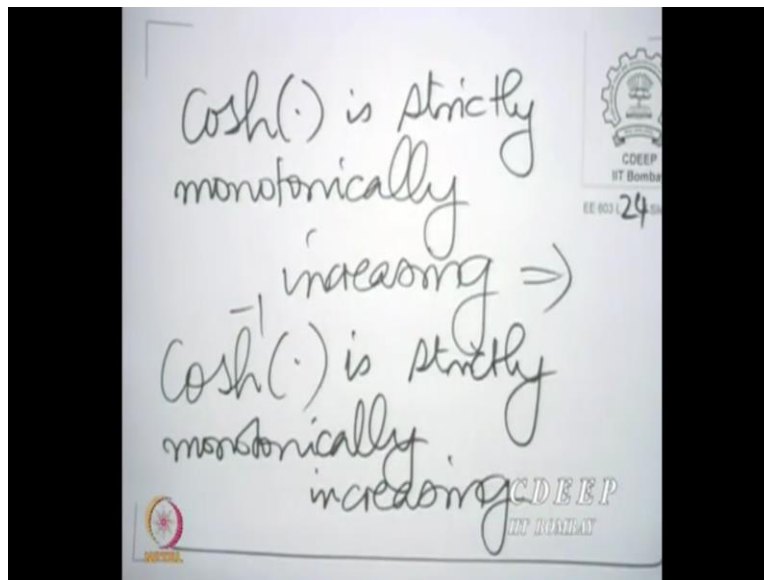 Cosh(·) is strictly
monotonically
increasing ⇒
Cosh⁻¹(·) is strictly
monotonically
increasing
CDEEP
IIT Bomba
EE 603 L 24
CDEEP
IIT BOMBAY
NPTEL